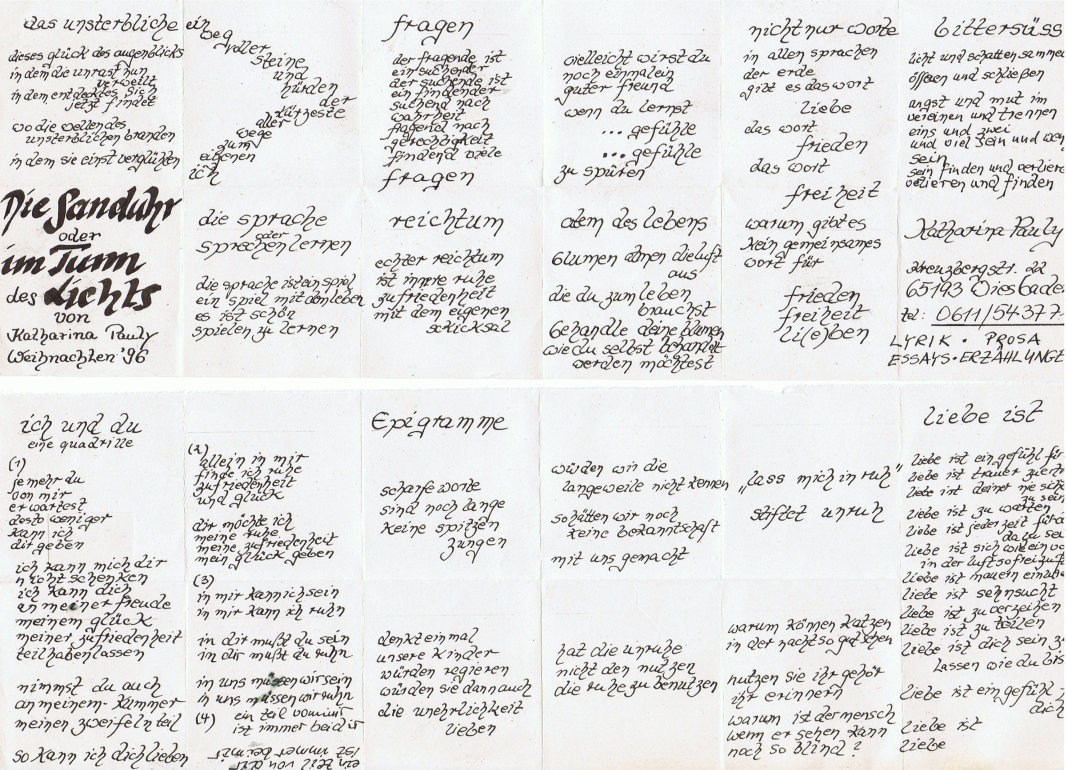 das unsterbliche
dieses glück des augenblicks
in dem die unrast nun
verweilt
in dem entdecktes sich
jetzt findet
wo die wellen des
unsterblichen branden
in dem sie einst verglühten
ein
weg
voller
steine
und
hürden
der
kürzeste
aller
wege
zum
eigenen
ich
fragen
der fragende ist
ein suchender
der suchende ist
ein findender
suchend nach
wahrheit
fragend nach
gerechtigkeit
findend viele
fragen
vielleicht wirst du
noch einmal ein
guter freund
wenn du lernst
... gefühle
... gefühle
zu spüren
nicht nur worte
in allen sprachen
der erde
gibt es das wort
liebe
das wort
frieden
das wort
freiheit
warum gibt es
kein gemeinsames
wort für
frieden
freiheit
li(e)ben
bittersüss
licht und schatten
öffnen und schließen
angst und mut im
vereinen und trennen
eins und zwei
und viel sein und
sein
sein finden und
verlieren und finden
Die Sanduhr
oder
im Turm
des dichts
von
Katharina Pauly
Weihnachten '96
die sprache
oder
sprechen lernen
die sprache ist ein spiel
ein spiel mit dem leben
es ist schön
spielen zu lernen
reichtum
echter reichtum
ist innere ruhe
zufriedenheit
mit dem eigenen
schicksal
atem des lebens
blumen atmen die luft
aus
die du zum leben
brauchst
behandle deine blumen
wie du selbst behandelt
werden möchtest
Katharina Pauly
Kreuzbergstr. 22
65193 Wiesbade
tel: 0611/54377
LYRIK · PROSA
ESSAYS · ERZÄHLUNGE
ich und du
eine quadrille
(1)
je mehr du
von mir
erwartest
desto weniger
kann ich
dir geben
ich kann mich dir
nicht schenken
ich kann dich
an meiner freude
meinem glück
meiner zufriedenheit
teilhaben lassen
nimmst du auch
an meinem kummer
meinen zweifeln teil
so kann ich dich lieben
(2)
allein in mir
finde ich ruhe
zufriedenheit
und glück
dir möchte ich
meine ruhe
meine zufriedenheit
mein glück geben
(3)
in mir kann ich sein
in mir kann ich ruhn
in dir mußt du sein
in dir mußt du ruhn
in uns müssen wir sein
in uns müssen wir ruhn
(4) ein teil von mir
ist immer bei dir
ein teil von dir
ist immer bei mir
Epigramme
scharfe worte
sind noch lange
keine spitzen
zungen
denkt einmal
unsere kinder
würden regieren
würden sie dann auch
die unehrlichkeit
lieben
würden wir die
langeweile nicht kennen
so hätten wir noch
keine bekanntschaft
mit uns gemacht
hat die unruhe
nicht den nutzen
die ruhe zu benutzen
„lass mich in ruh"
stiftet unruh
warum können katzen
in der nacht so gut sehen
nutzen sie ihr gehör
ihr erinnern
warum ist der mensch
wenn er sehen kann
noch so blind?
liebe ist
liebe ist ein gefühl für
liebe ist trauer
liebe ist deiner nie
zu sein
liebe ist zu warten
liebe ist jederzeit für
da zu sei
liebe ist sich wie ein vo
in der luft so frei zu
liebe ist mauern
liebe ist sehnsucht
liebe ist zu verzeihen
liebe ist zu teilen
liebe ist dich sein z
lassen wie du bis
liebe ist ein gefühl
dich
liebe ist
liebe